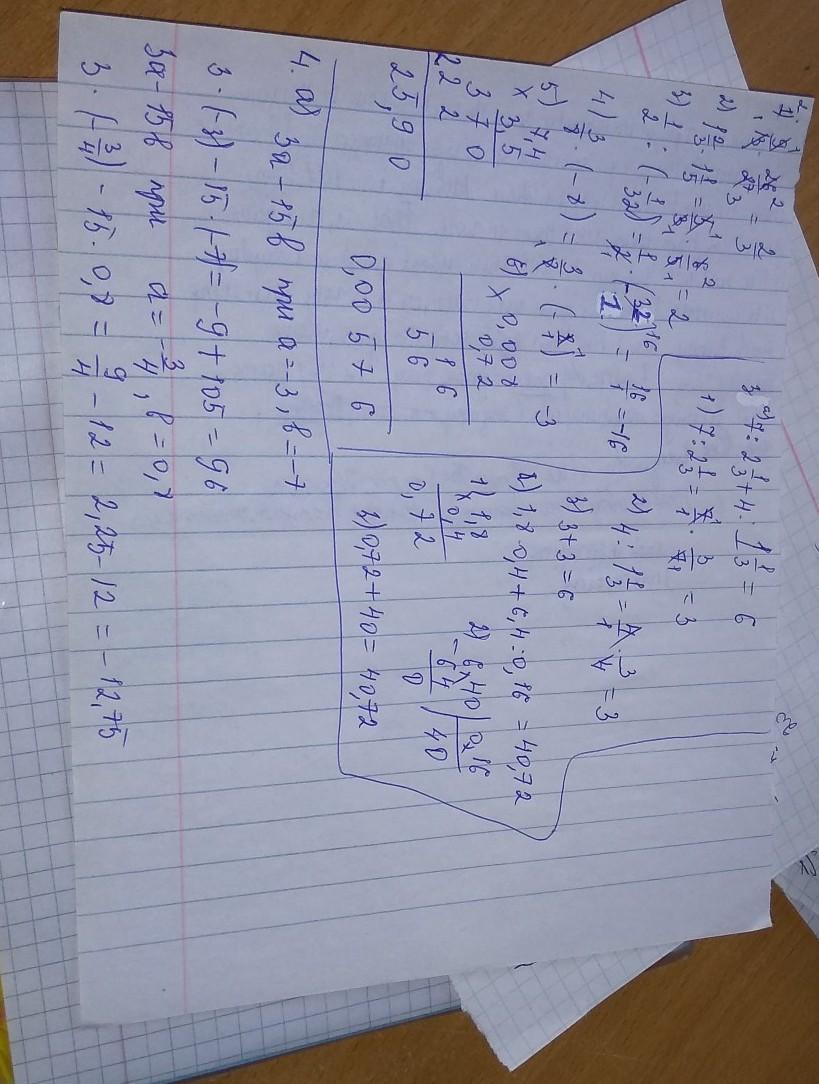 2.
1) 9/10 · 20/27 = 2/3
2) 1 2/3 · 1 1/5 = 5/3 · 6/5 = 2
3) 1/2 : (- 1/32) = 1/2 · (- 32/1) = 16/1 = -16
4) 3/8 · (-8) = 3/8 · (- 8/1) = -3
5) 7,4
× 3 5
3 7 0
22 2
25,9 0
6) × 0,008
0,72
1 6
5 6
0,00 5 7 6
3 a) 7 : 2 1/3 + 4 : 1 1/3 = 6
1) 7 : 2 1/3 = 7/1 · 3/7 = 3
2) 4 : 1 1/3 = 4/1 · 3/4 = 3
3) 3+3 = 6
б) 1,8 · 0,4 + 6,4 : 0,16 = 40,72
1) × 1,8
0,4
0,7 2
2) 6,40 | 0,16
- 64 | 40
0
3) 0,72 + 40 = 40,72
4. а) 3a - 15b при a = -3, b = -7
3 · (-3) - 15 · (-7) = -9 + 105 = 96
3a - 15b при a = - 3/4, b = 0,8
3 · (- 3/4) - 15 · 0,8 = 9/4 - 12 = 2,25 - 12 = - 12,75